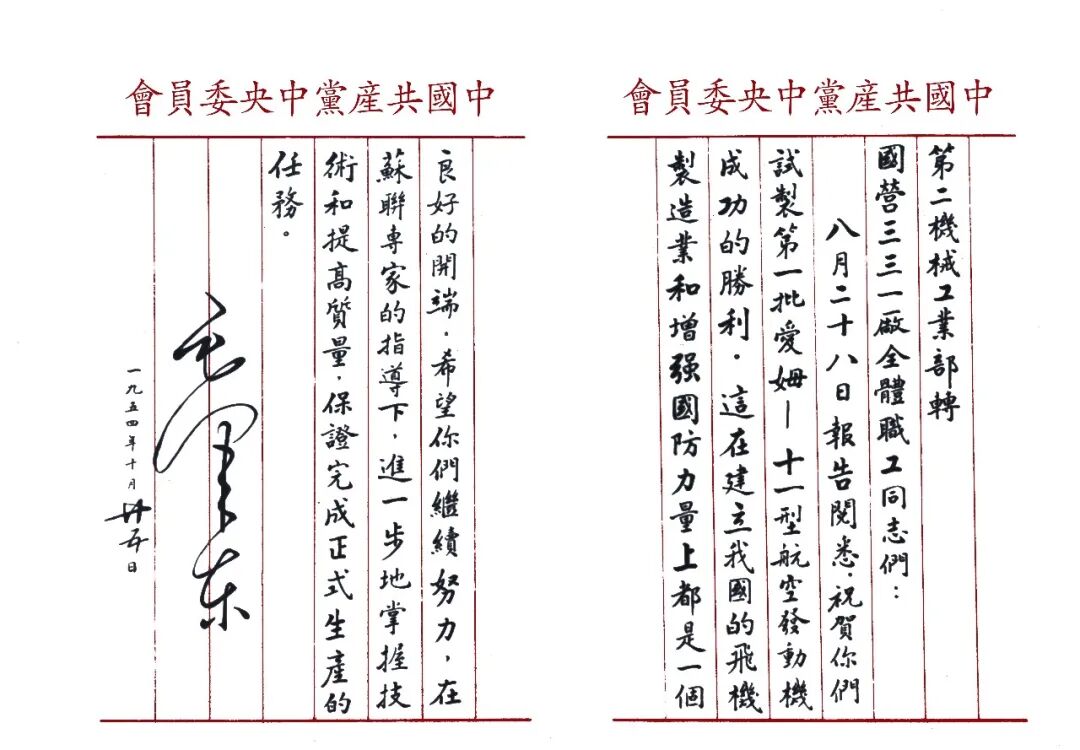 中國共産黨中央委員會
第二機械工業部轉
國營三三一廠全體職工同志們：
八月二十八日報告閱悉．祝賀你們
試製第一批愛姆—十一型航空發動機
成功的勝利．這在建立我國的飛機
製造業和增强國防力量上都是一個
中國共産黨中央委員會
良好的開端．希望你們繼續努力，在
蘇聯專家的指導下，進一步地掌握技
術和提高質量，保證完成正式生産的
任務．
毛澤東
一九五四年十月廿五日